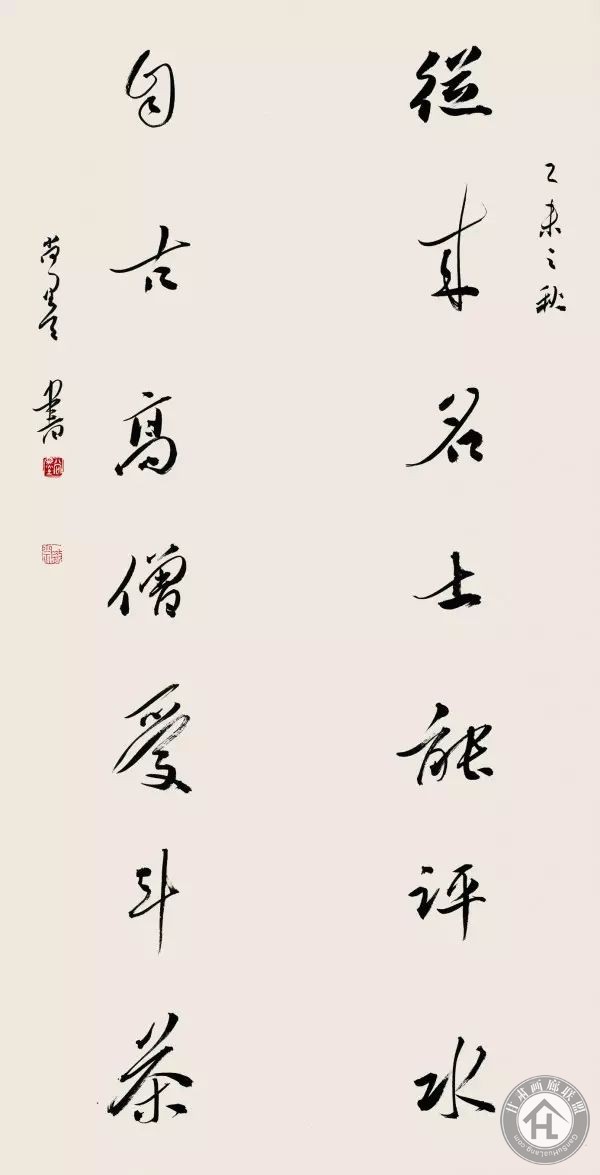 乙未之秋
從來名士能評水
自古高僧愛斗茶
書
甘肃画廊联盟
GanSuHuaLang.com